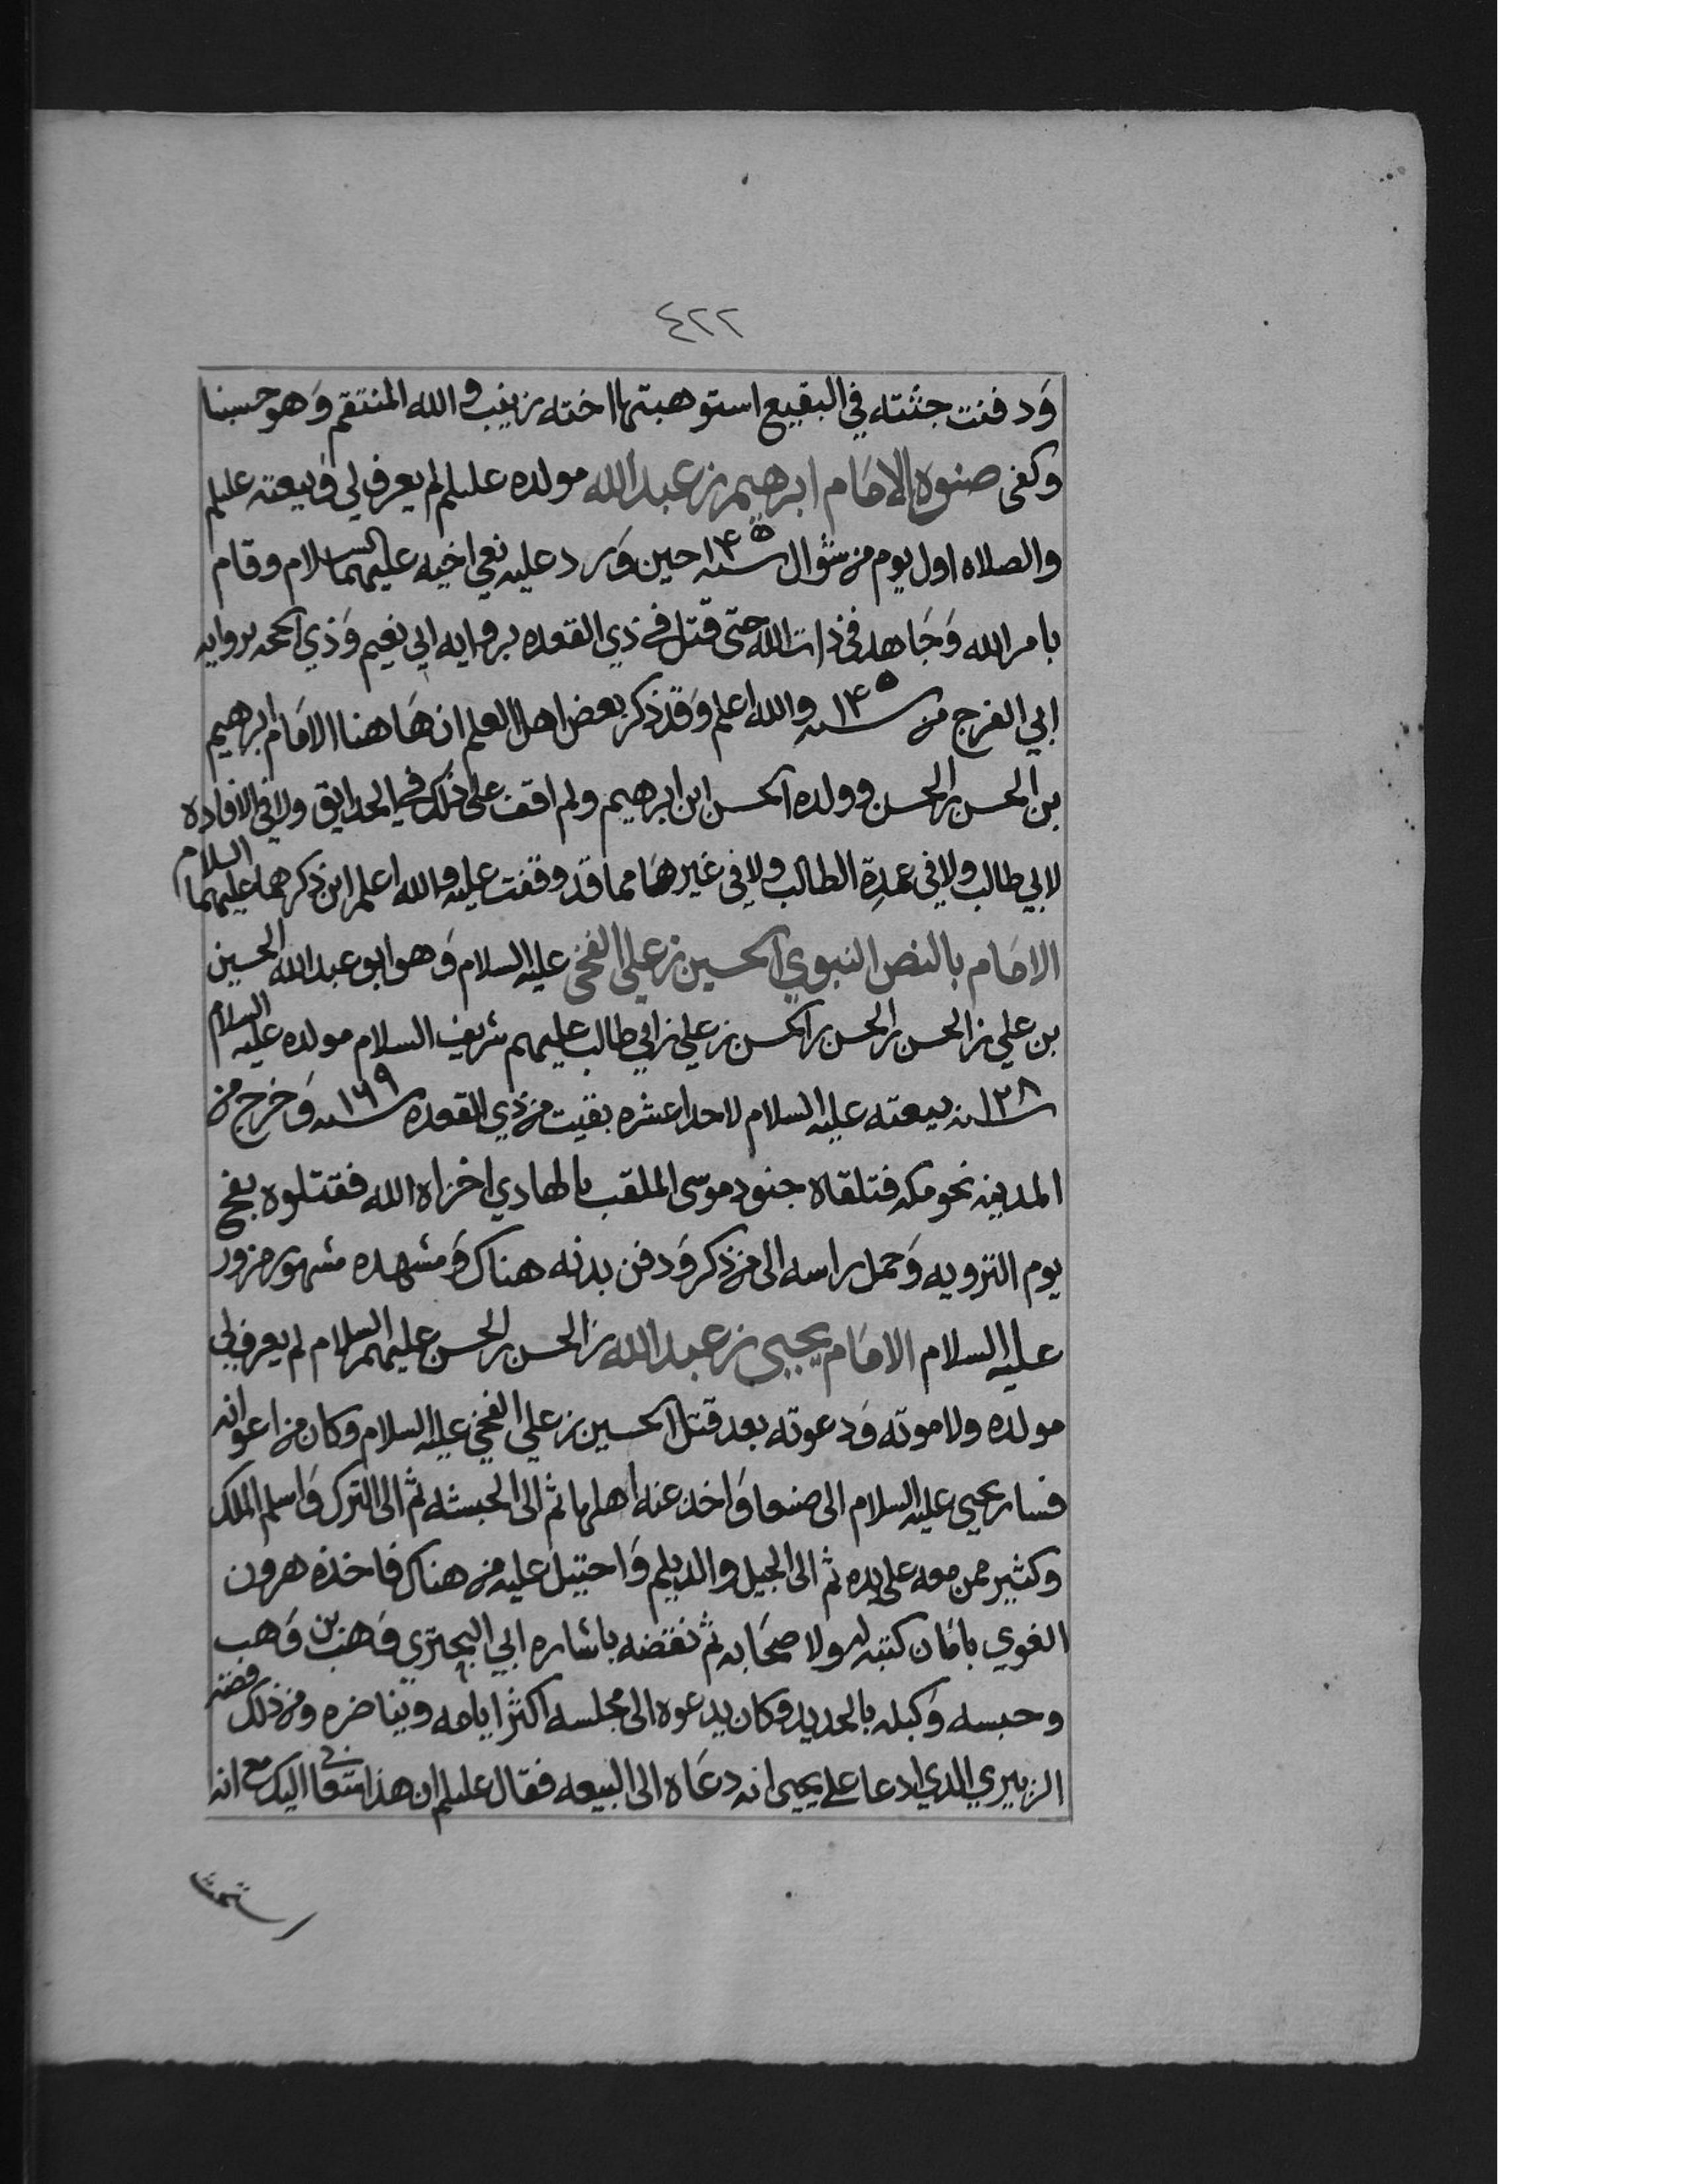 ٤٢٢
وَدفنت جثته في البقيع استوهبتها اخته زينب والله المنتقم وَهو حسبنا
وكفى صنوه الامَام ابرهيم بن عبدالله مولده عليلم لم يعرف لي وَبيعته عليلم
والصلاه اول يوم من شوال سنه ١٤٥ حين وَرد عليه نعي اخيه عليهما السلام وقام
بامر الله وَجَاهد في ذات الله حتى قتل في ذي القعده بروايه ابي نعيم وَذي الحجه بروايه
ابي الفرج من سنه ١٤٥ والله اعلم وَقد ذكر بعض اهل العلم ان هَاهنا الامَام ابرهيم
بن الحسن بن الحسن وولده الحسن ابن ابرهيم ولم اقف على ذلك في الحدايق ولا في الافاده
لابي طالب ولا في عمدة الطالب ولا في غيرهَا مما قد وقفت عليه والله اعلم اين ذكرهما عليهما السلام
الامَام بالنص النبوي الحسين بن علي الفخي عليه السلام وَهو ابو عبدالله الحسين
بن علي بن الحسن بن الحسن بن الحسن بن علي بن ابي طالب عليهم شريف السلام مولده عليه السلام
سنه ١٢٨ بيعته عليه السلام لاحدا عشره بقيت من ذي القعده سنه ١٦٩ وَخرج من
المدينه نحو مكه فتلقاه جنود موسى الملقب بالهادي اخزاه الله فقتلوه بفخ
يوم الترويه وَحمل راسه الى من ذكر وَدفن بدنه هناك وَمشهده مشهور مزور
عليه السلام الامَام يحيى بن عبدالله بن الحسن بن الحسن عليهم السلام لم يعرف لي
مولده ولا موته وَدعوته بعد قتل الحسين بن علي الفخي عليه السلام وكان من اعوانه
فسار يحيى عليه السلام الى صنعا وَاخذ عنه اهلها ثم الى الحبشه ثم الى الترك وَاسلم الملك
وكثير ممن معه على يده ثم الى الجيل والديلم وَاحتيل عليه من هناك فاخذه هرون
الغوي بامَان كتبه له ولاصحَابه ثم نقضه باشاره ابي البحتري وَهب بن وَهب
وحبسه وَكبله بالحديد وكان يدعوه الى مجلسه اكثر ايامه ويناضره ومن ذلك قصه
الزبيري الذي ادعا على يحيى انه دعَاه الى البيعه فقال عليلم ان هذا سعا بي اليك مع انه